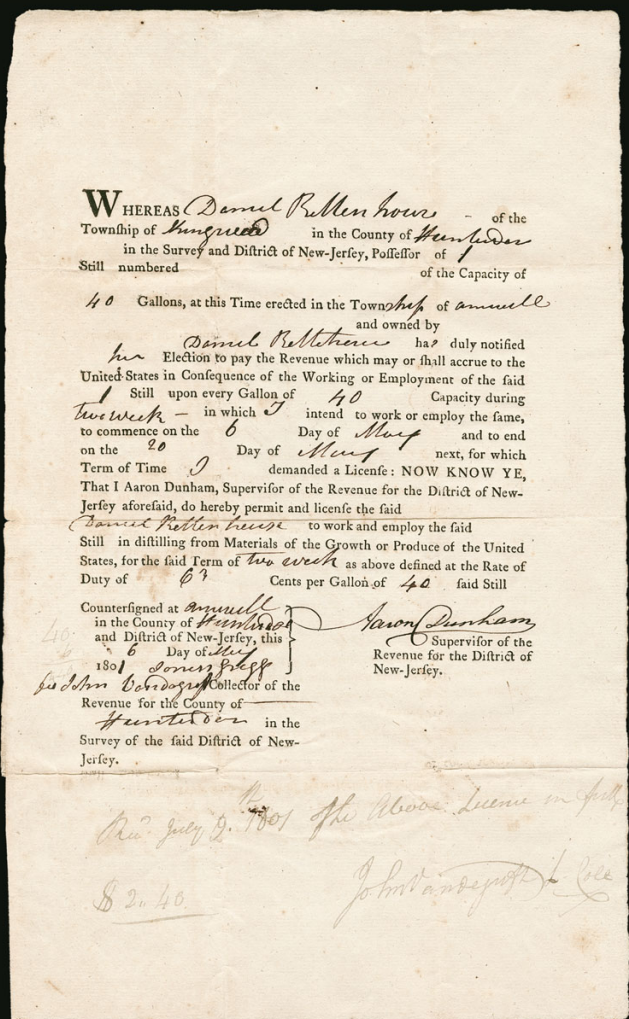 WHEREAS Daniel Rittenhouse of the
Township of Kingwood in the County of Hunterdon
in the Survey and District of New-Jersey, Possessor of 1
Still numbered of the Capacity of
40 Gallons, at this Time erected in the Township of amwell
and owned by
Daniel has duly notified
his Election to pay the Revenue which may or shall accrue to the
United States in Consequence of the Working or Employment of the said
1 Still upon every Gallon of 40 Capacity during
two week — in which I intend to work or employ the same,
to commence on the 6 Day of May and to end
on the 20 Day of May next, for which
Term of Time I demanded a License: NOW KNOW YE,
That I Aaron Dunham, Supervisor of the Revenue for the District of New-
Jersey aforesaid, do hereby permit and license the said
Daniel Rittenhouse to work and employ the said
Still in distilling from Materials of the Growth or Produce of the United
States, for the said Term of two week as above defined at the Rate of
Duty of 6 Cents per Gallon of 40 said Still
Countersigned at amwell
in the County of Hunterdon
and District of New-Jersey, this
6 Day of May
1801
for John Vandegrift Collector of the
Revenue for the County of
Hunterdon in the
Survey of the said District of New-
Jersey.
Aaron Dunham
Supervisor of the
Revenue for the District of
New-Jersey.
July 9th 1801 of the Above License in full
John Vandegrift
$ 2.40